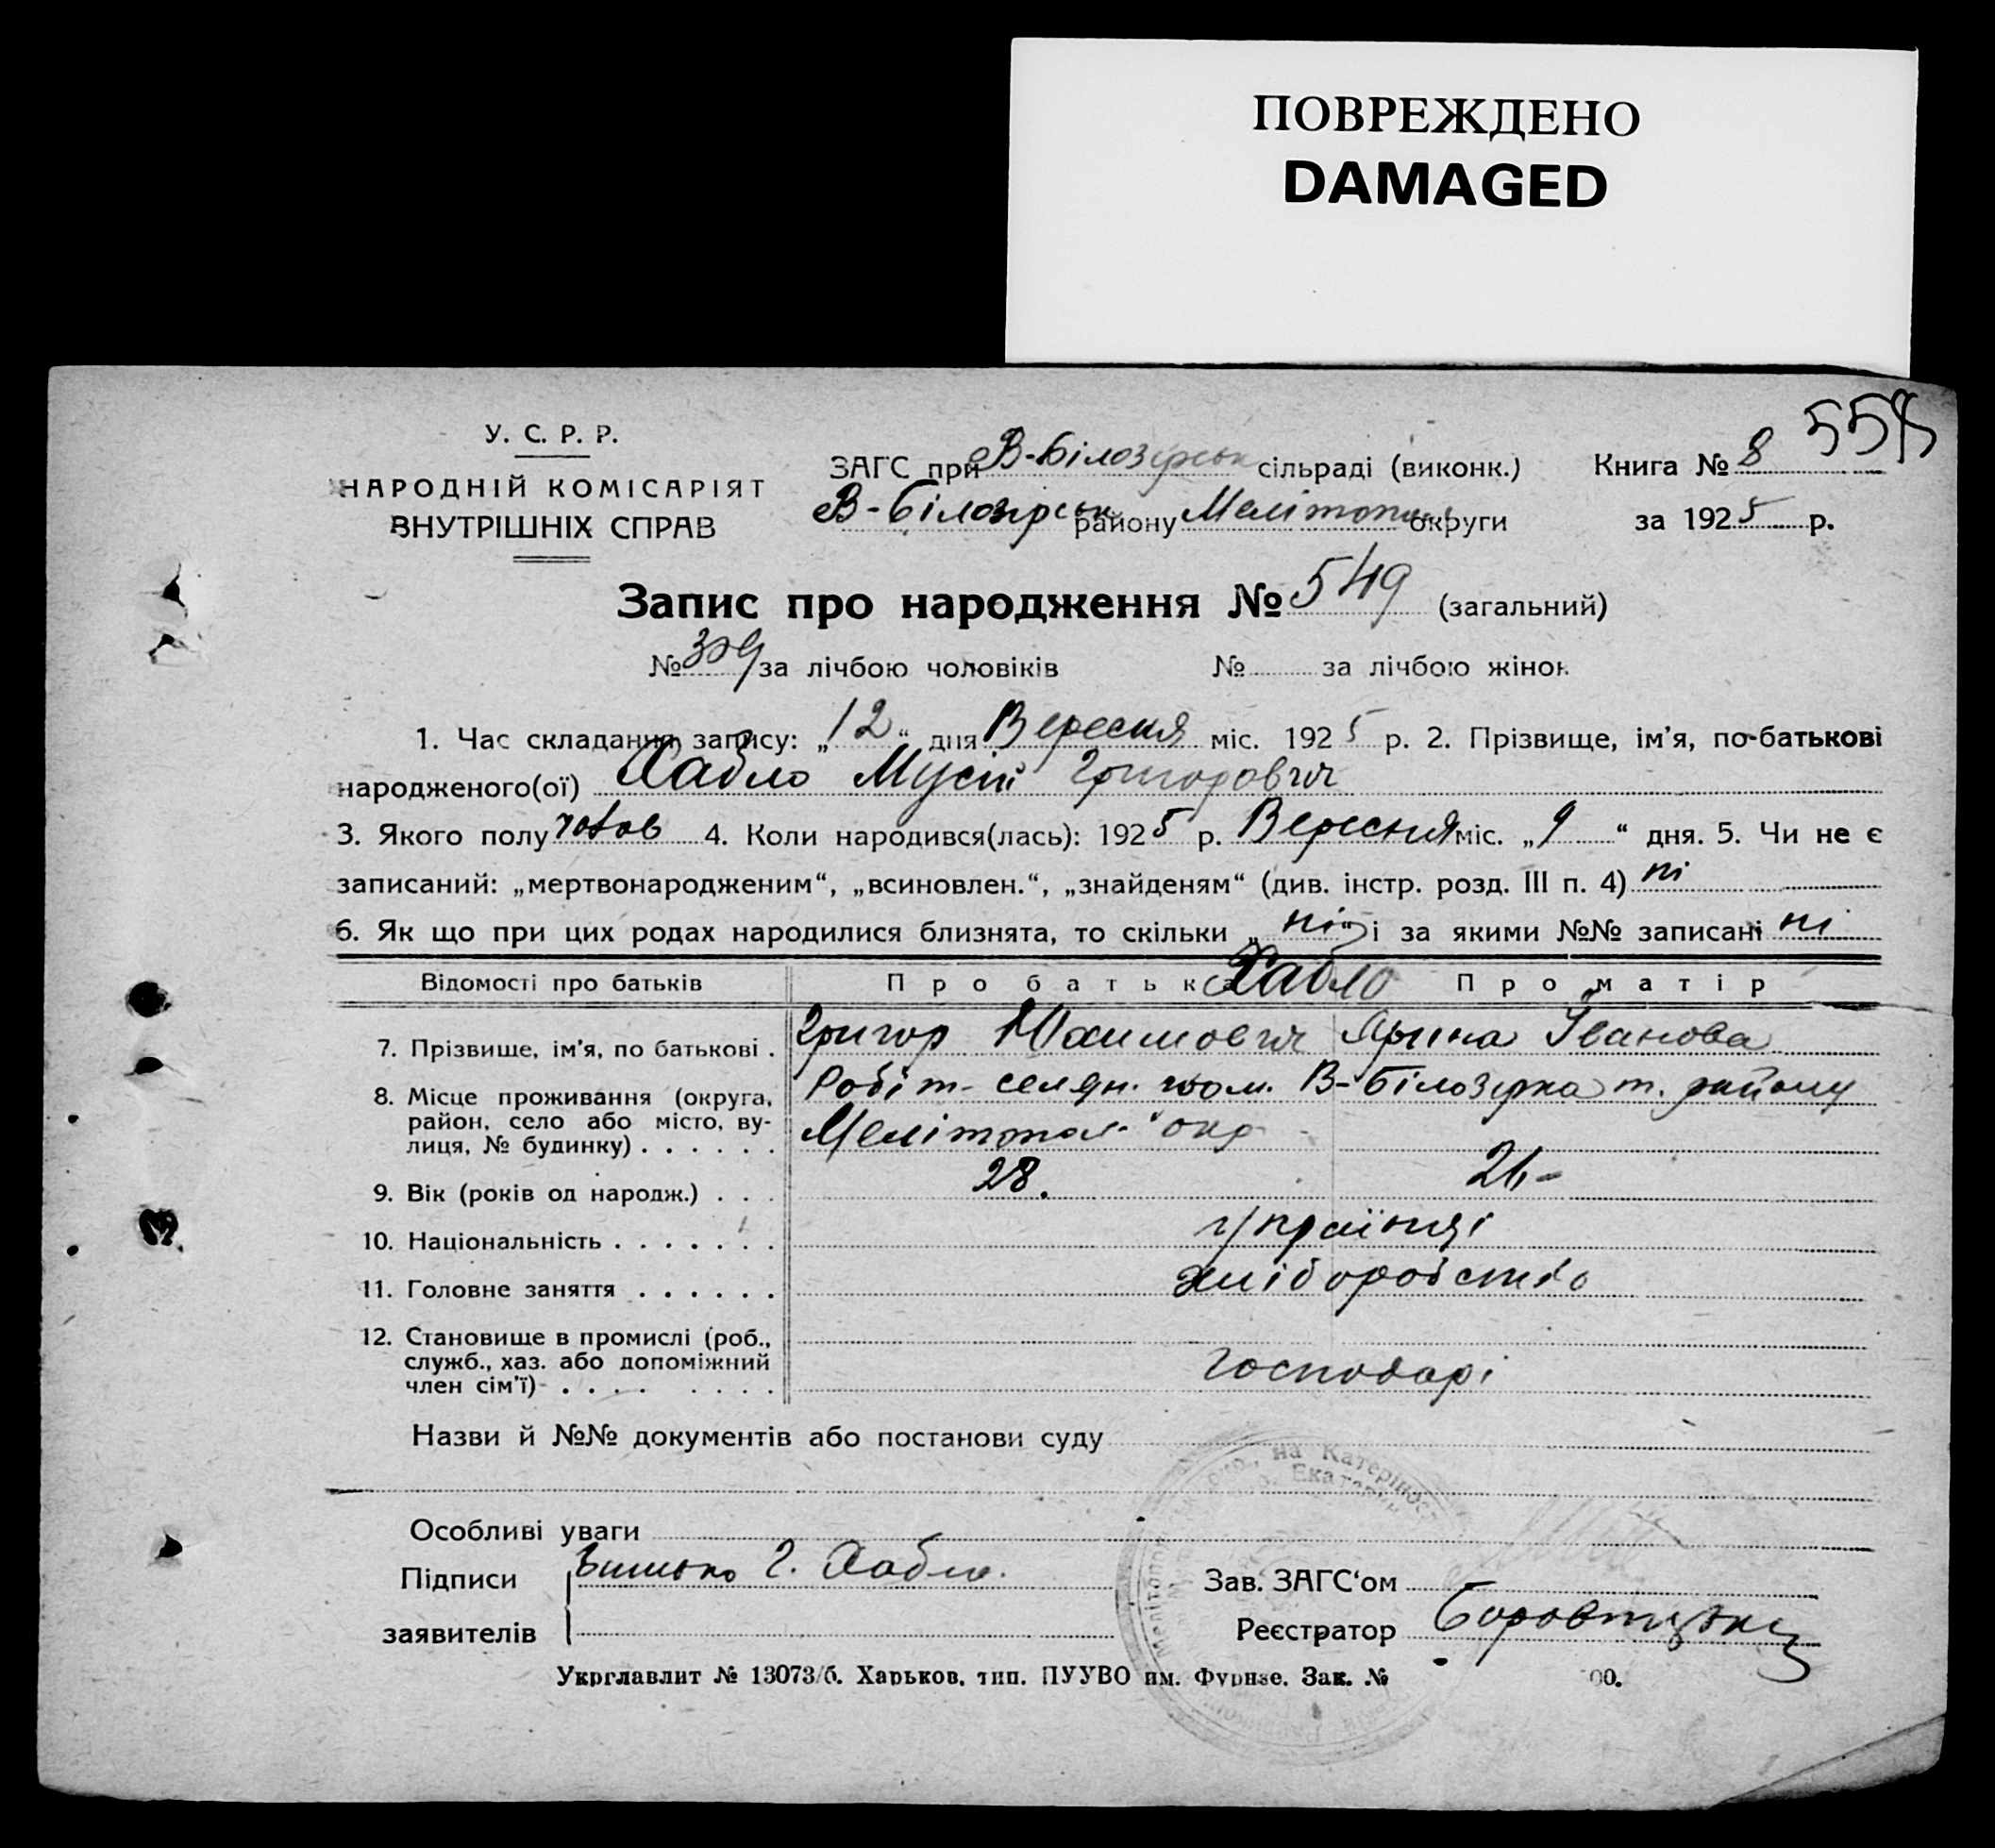 ПОВРЕЖДЕНО
DAMAGED
У. С. Р. Р.
НАРОДНІЙ КОМІСАРІЯТ
ВНУТРІШНІХ СПРАВ
ЗАГС при В-Білозірськ сільраді (виконк.) Книга № 8
В-Білозірськ району Мелітопол округи за 1925 р.
Запис про народження № 549 (загальний)
№ за лічбою чоловіків № за лічбою жінок
1. Час складання запису: „12“ дня Вересня міс. 1925 р. 2. Прізвище, ім’я, по-батькові
народженого(ої) Хабло Мусій Григорович
3. Якого полу чолов 4. Коли народився(лась): 1925 р. Вересня міс. „9“ дня. 5. Чи не є
записаний: „мертвонародженим“, „всиновлен.“, „знайденям“ (див. інстр. розд. III п. 4) ні
6. Як що при цих родах народилися близнята, то скільки „ні“ і за якими №№ записані ні
Відомості про батьків Про батька Хабло Про матір
7. Прізвище, ім’я, по батькові . Григор Юхимович Ярина Іванова
8. Місце проживання (округа, район, село або місто, вулиця, № будинку) . . . . . . Робіт-селян. В-Білозірка т. району
Мелітопол. окр
9. Вік (років од народж.) . . . 28. 26-
10. Національність . . . . . . . українці
11. Головне заняття . . . . . . хліборобство
12. Становище в промислі (роб.,
служб., хаз. або допоміжний
член сім’ї) . . . . . . . . господарі
Назви й №№ документів або постанови суду
Особливі уваги
Підписи Г. Хабло. Зав. ЗАГС‘ом
заявителів Реєстратор
Укрглавлит № 13073/б. Харьков, тип. ПУУВО им. Фрунзе. Зак. № 00.